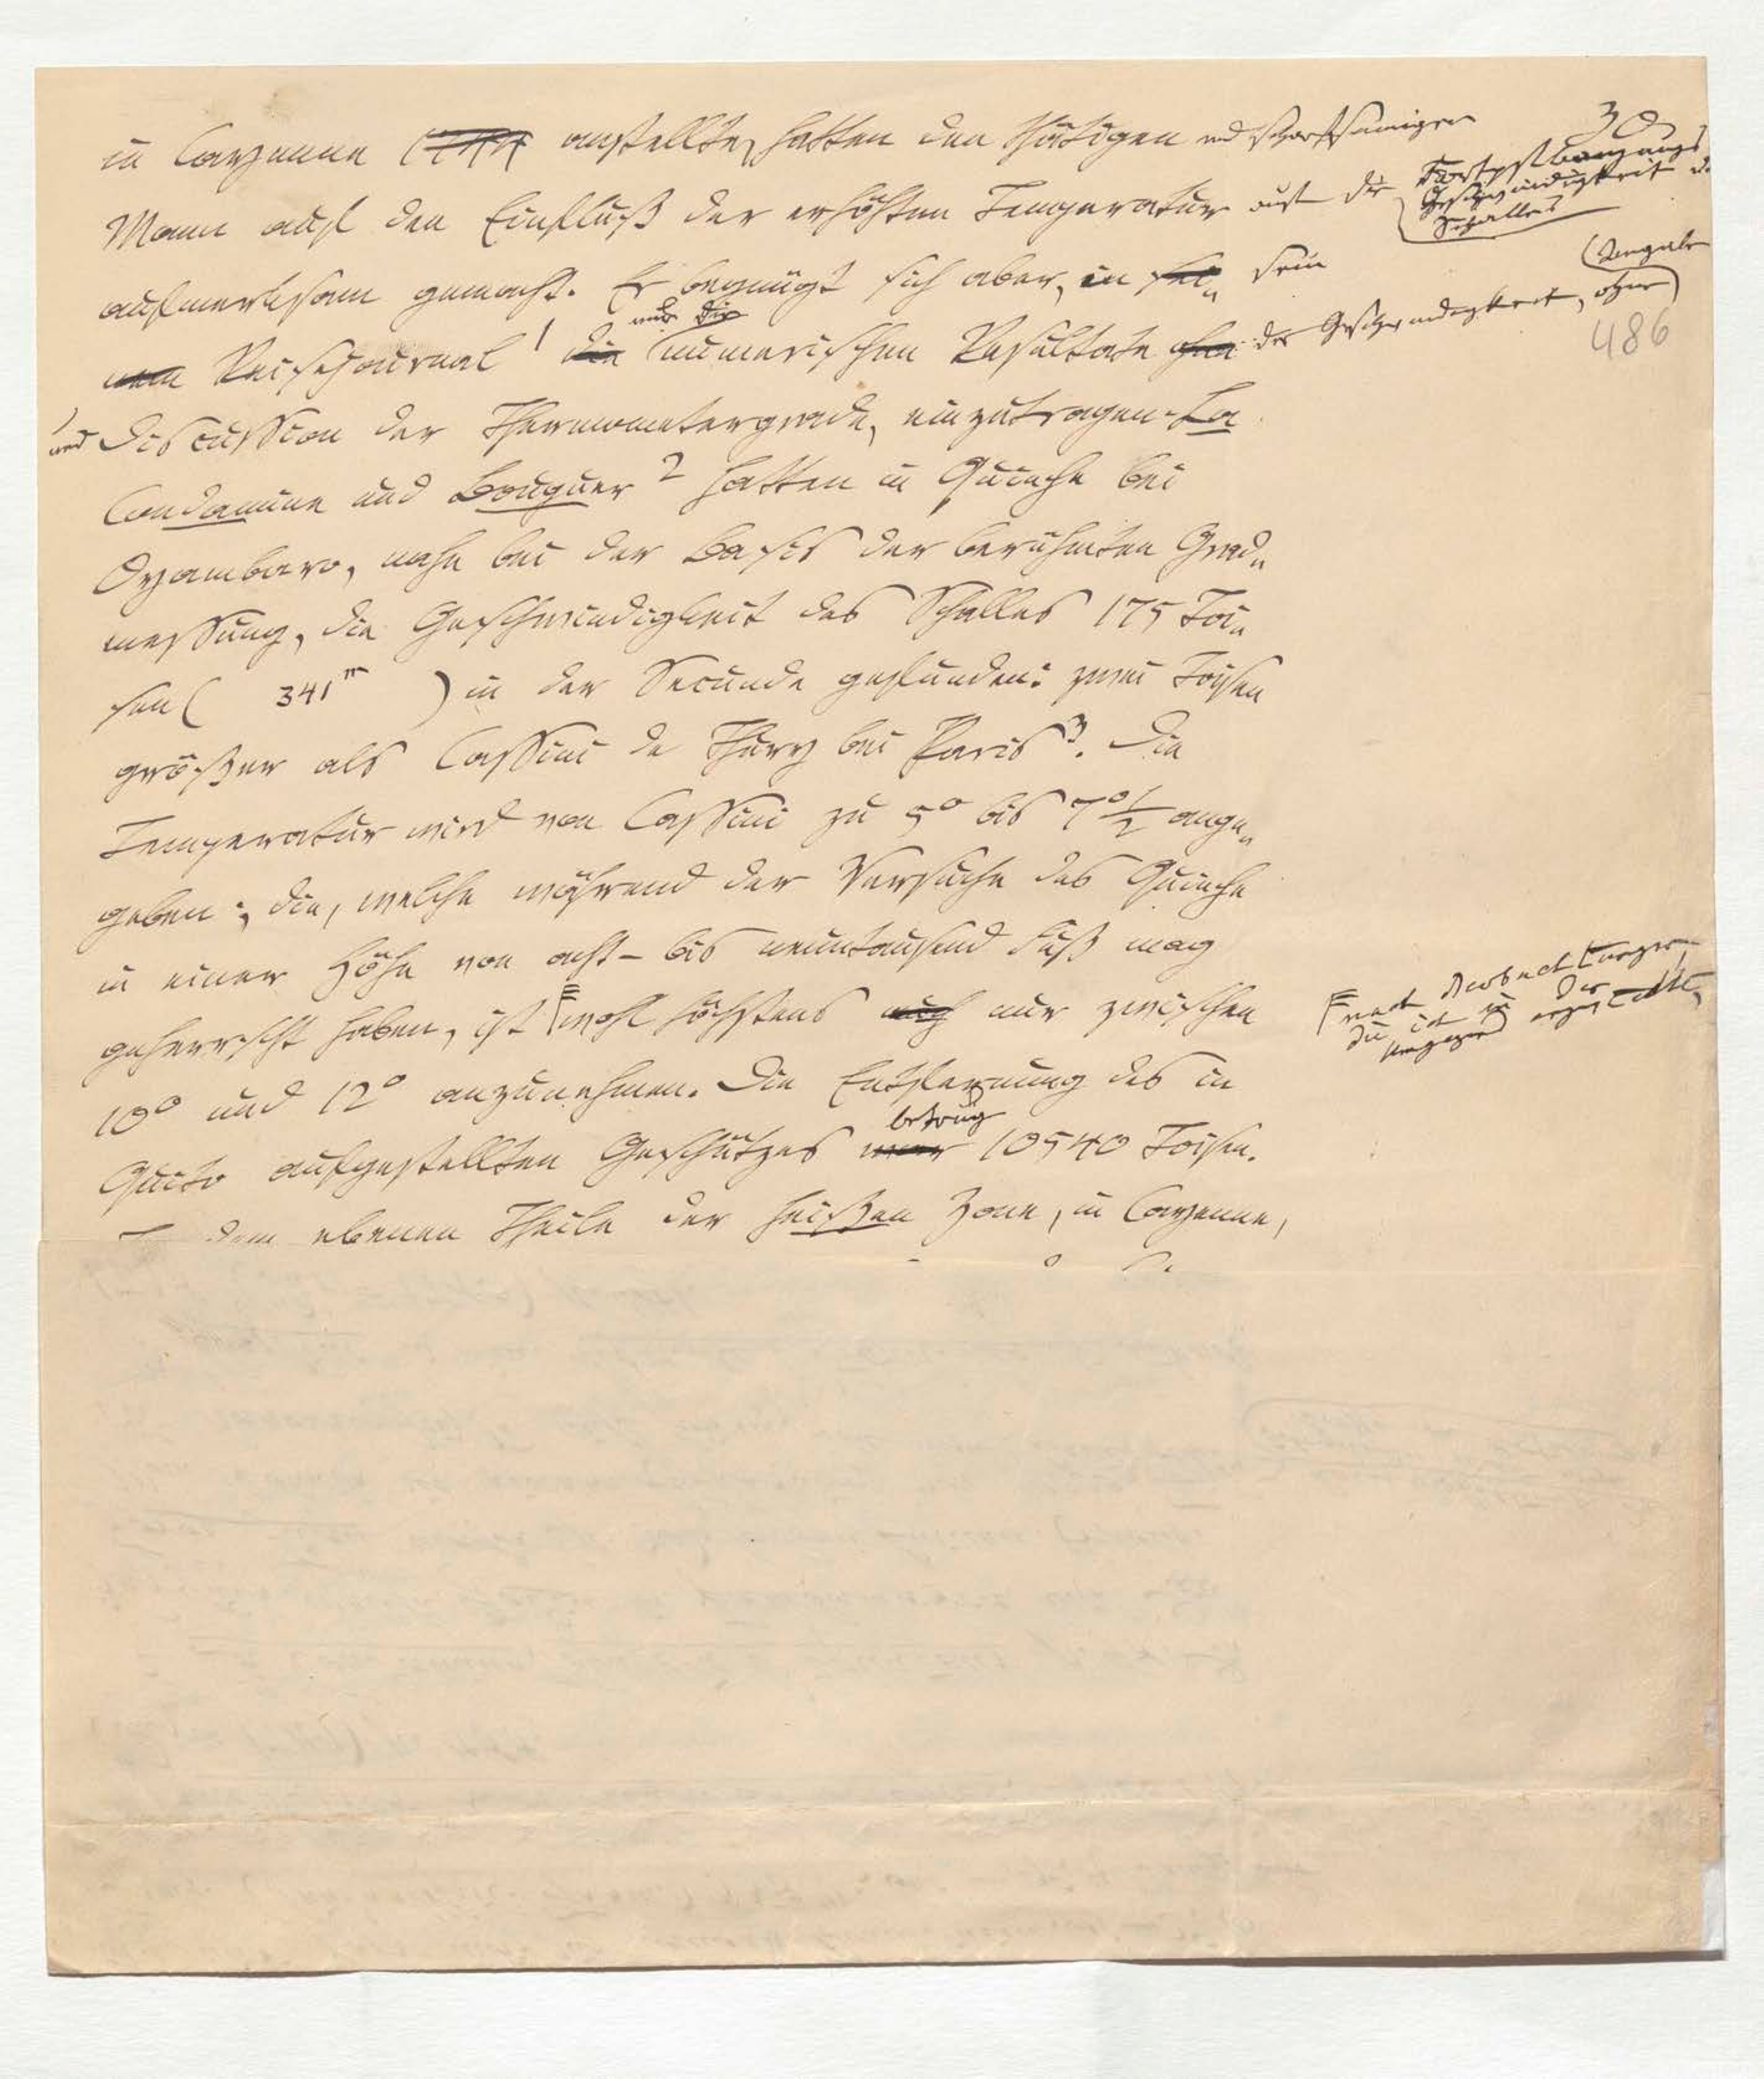 30
in Cayenne anstellte, hatten den thätigen und scharfsinnigen
Mann auf den Einfluß der erhöhten Temperatur auf die Fortpflanzungs
Geschwindigkeit d.
Schalles
aufmerksam gemacht. Er begnügt sich aber, in sei„ sein
nem Reisejournal 1 die nur die numerischen Resultate ohne der Geschwindigkeit, ohne
Angabe
486
und Discussion der Thermometergrade, einzutragen. La
Condamine und Bouguer 2 hatten in Quinche bei
Oyambaro, nahe bei der Basis der berühmten Grad„
messung, die Geschwindigkeit des Schalles 175 Toi„
sen ( 341m ) in der Secunde gefunden: zwei Toisen
größer als Cassini de Thury bei Paris 3. Die
Temperatur wird von Cassini zu 5° bis 7°½ ange„
geben; die, welche während der Versuche des Quinche
in einer Höhe von acht- bis neuntausend Fuß mag
geherrscht haben, ist wohl höchstens auch nur zwischen
nach Beobachtungen,
die ich in der
Umgegend angestellt,
10° und 12° anzunehmen. Die Entfernung des in
Quito aufgestellten Geschützes war betrug 10540 Toisen.
dem ebenen Theile der heißen Zone, in Cayenne,